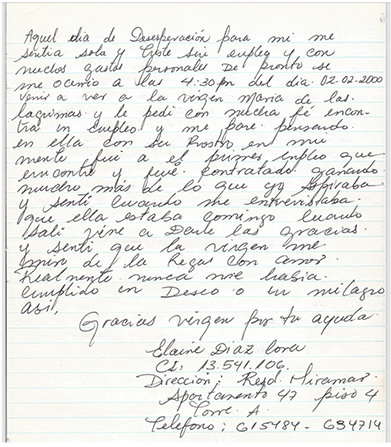 Aquel dia de Desesperación para mi me
sentia sola y triste sin empleo y con
muchos gastos personales De pronto se
me ocurrio a las 4:30pm del dia 02-02-2000
venir a ver a la virgen Maria de las
lagrimas y le pedi con mucha fé encon-
trar un empleo y me pare pensando
en ella con su Rostro en mi
mente fui a el primer empleo que
encontré y fué contratada ganando
mucho más de lo que yo aspiraba
y senti cuando me entrevistaba
que ella estaba conmigo cuando
sali vine a Darle las gracias
y senti que la virgen me
miro de la Rejas con amor
Realmente nunca me habia
cumplido un Deseo o un milagro
asi,
Gracias virgen por tu ayuda
Elaine Diaz Lora
CI: 13.541.106.
Dirección: Resd. Miramar
Apartamento 47 piso 4
Torre A.
Telefono: 615484- 634714